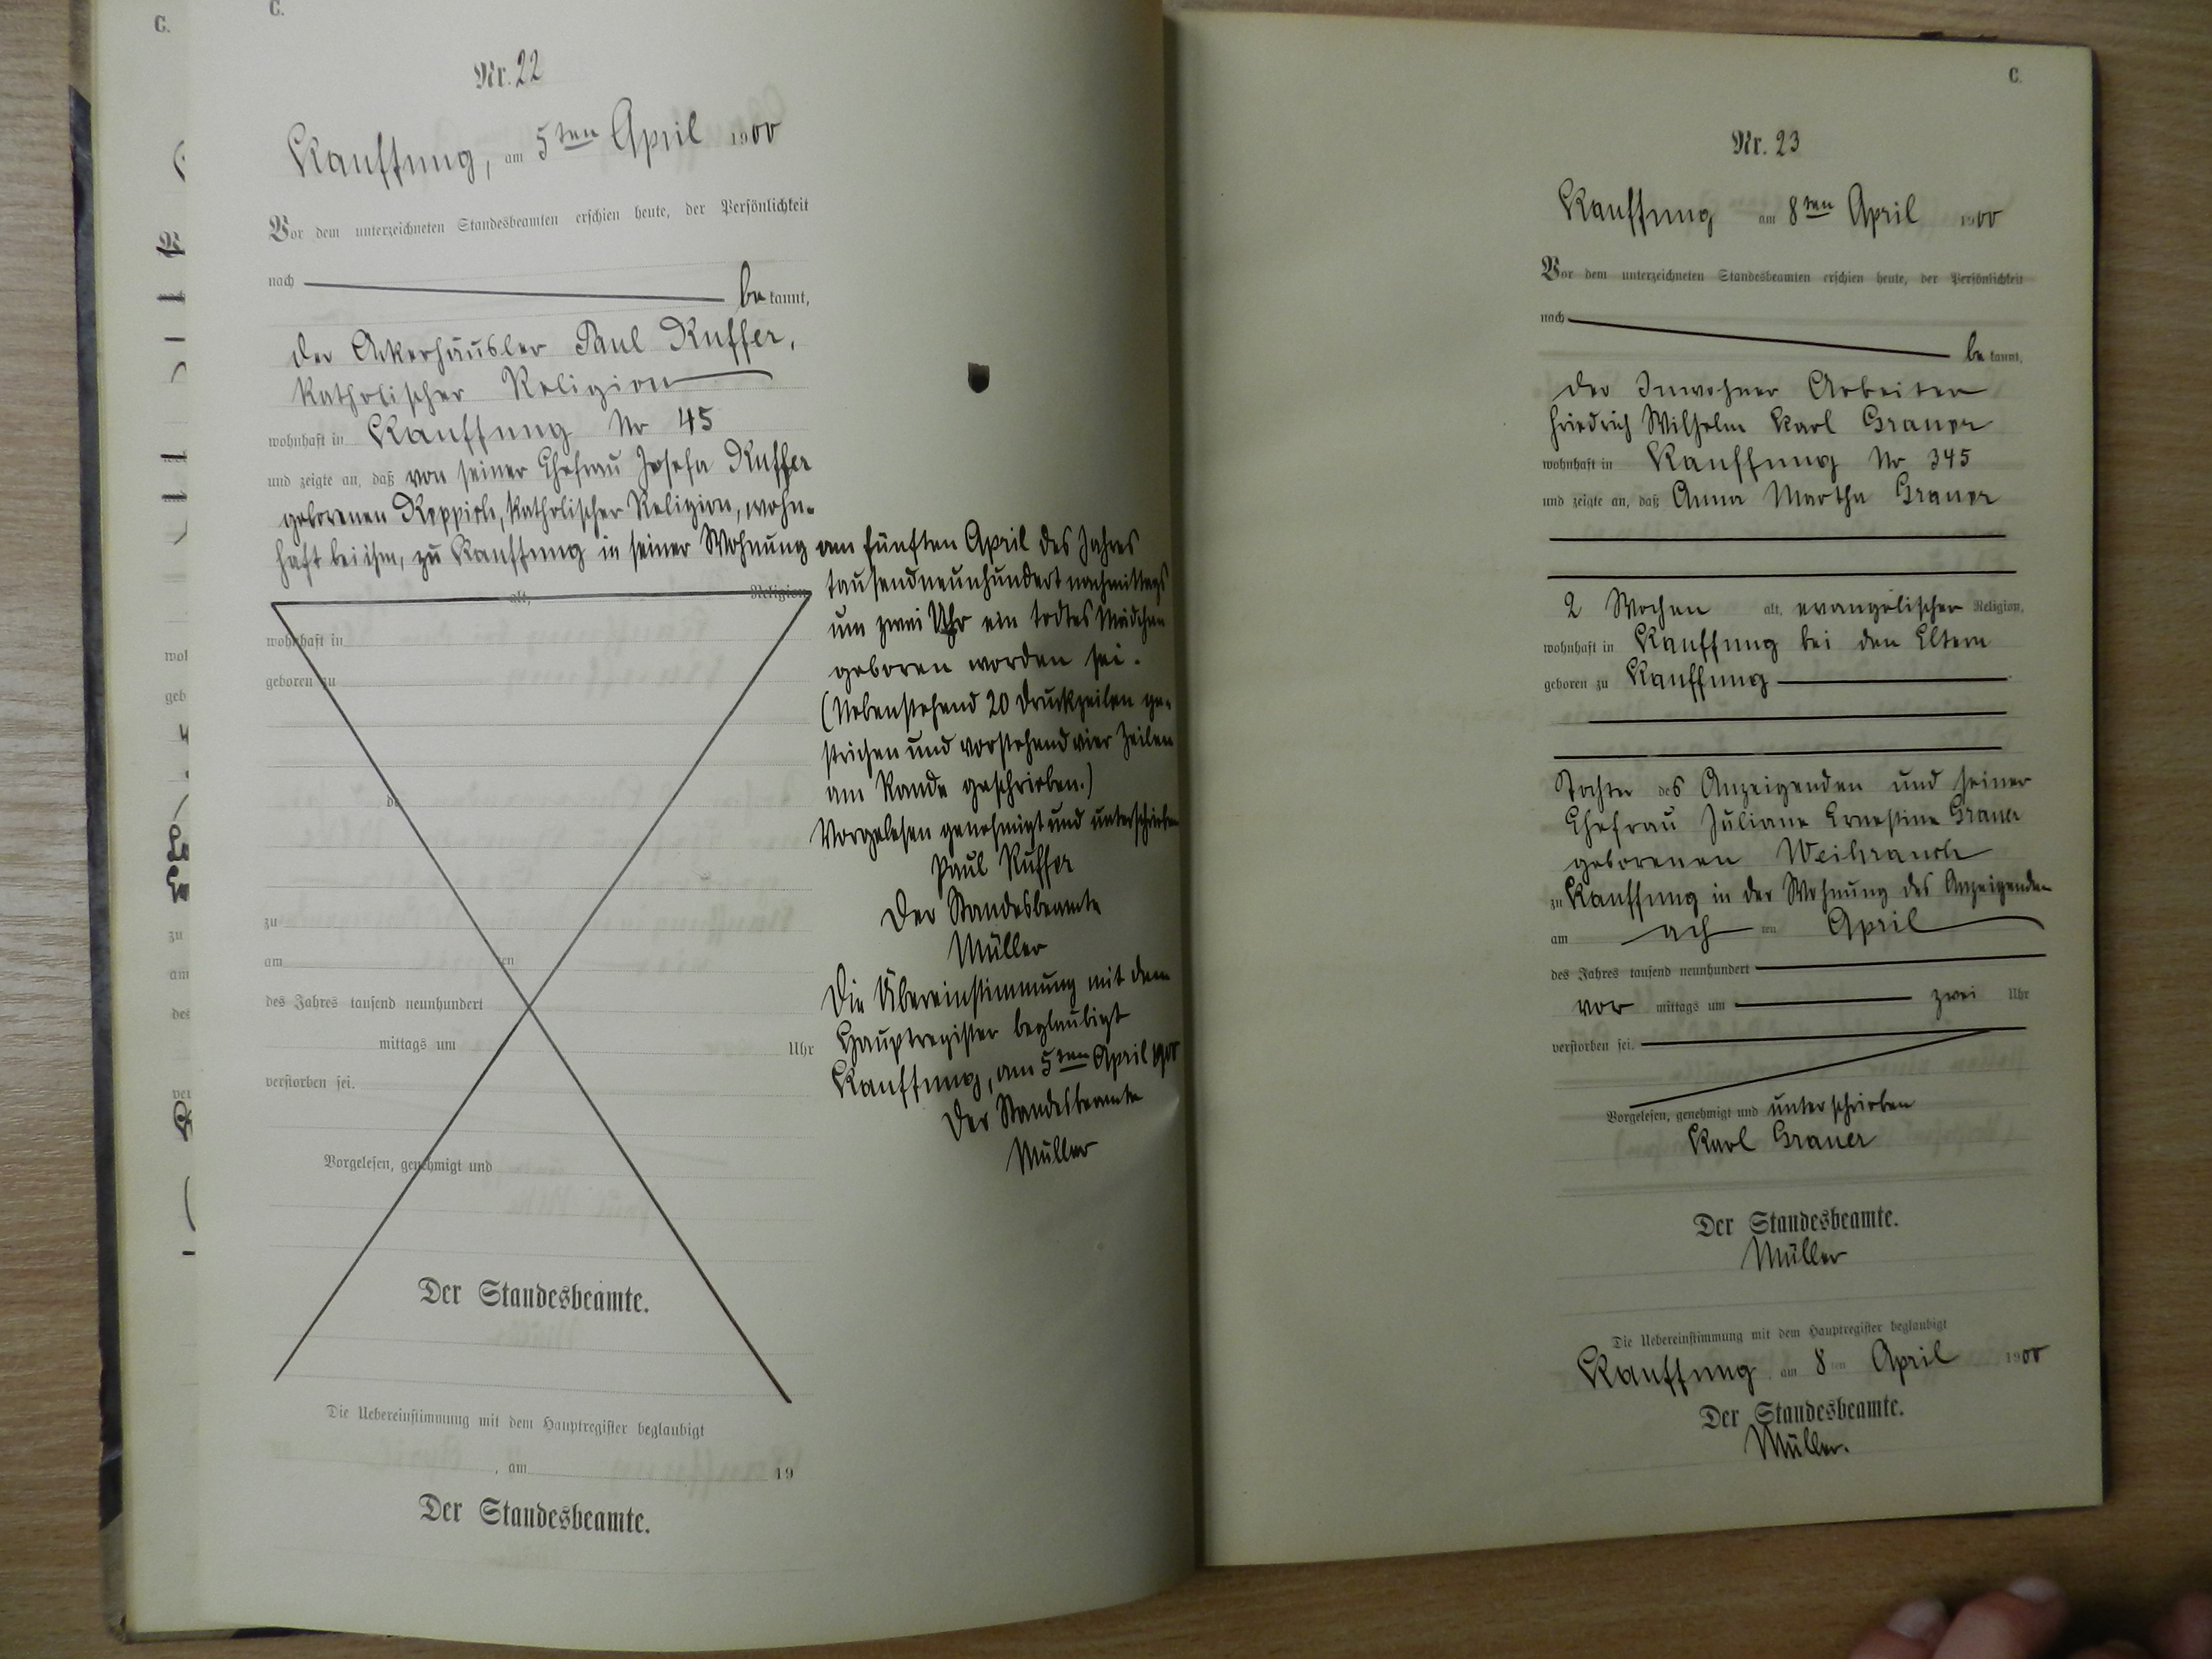 C.
C.
Nr. 22
Kauffung, am 5ten April 1900
Vor dem unterzeichneten Standesbeamten erschien heute, der Persönlichkeit
nach bekannt,
der Ackerhäusler Paul Ruffer,
katholischer Religion
wohnhaft in Kauffung Nr 45
und zeigte an, daß von seiner Ehefrau Josefa Ruffer
geborenen katholischer Religion, wohn-
haft bei ihm, zu Kauffung in seiner Wohnung
alt, Religion,
wohnhaft in
geboren zu
de
zu
am ten
des Jahres tausend neunhundert
mittags um Uhr
verstorben sei.
Vorgelesen, genehmigt und
Der Standesbeamte.
Die Uebereinstimmung mit dem Hauptregister beglaubigt
, am 19
Der Standesbeamte.
am fünften April des Jahres
tausendneunhundert nachmittags
um zwei Uhr ein todtes Mädchen
geboren worden sei.
(Nebenstehend 20 Druckzeilen ge-
strichen und vorstehend vier Zeilen
am Rande geschrieben.)
Vorgelesen genehmigt und unterschrieben
Paul Ruffer
Der Standesbeamte
Müller
Die Übereinstimmung mit dem
Hauptregister beglaubigt
Kauffung, am 5ten April 1900
Der Standesbeamte
Müller
C.
Nr. 23
Kauffung am 8ten April 1900
Vor dem unterzeichneten Standesbeamten erschien heute, der Persönlichkeit
nach bekannt,
der Inwohner Arbeiter
Friedrich Wilhelm Karl Grauer
wohnhaft in Kauffung Nr 345
und zeigte an, daß Anna Martha Grauer
2 Wochen alt, evangelischer Religion,
wohnhaft in Kauffung bei den Eltern
geboren zu Kauffung
Tochter des Anzeigenden und seiner
Ehefrau Juliane Ernestine Grauer
geborenen Weihrauch
zu Kauffung in der Wohnung des Anzeigenden
am ach ten April
des Jahres tausend neunhundert
vor mittags um zwei Uhr
verstorben sei.
Vorgelesen, genehmigt und unterschrieben
Karl Grauer
Der Standesbeamte.
Müller
Die Uebereinstimmung mit dem Hauptregister beglaubigt
Kauffung am 8ten April 1900
Der Standesbeamte.
Müller.